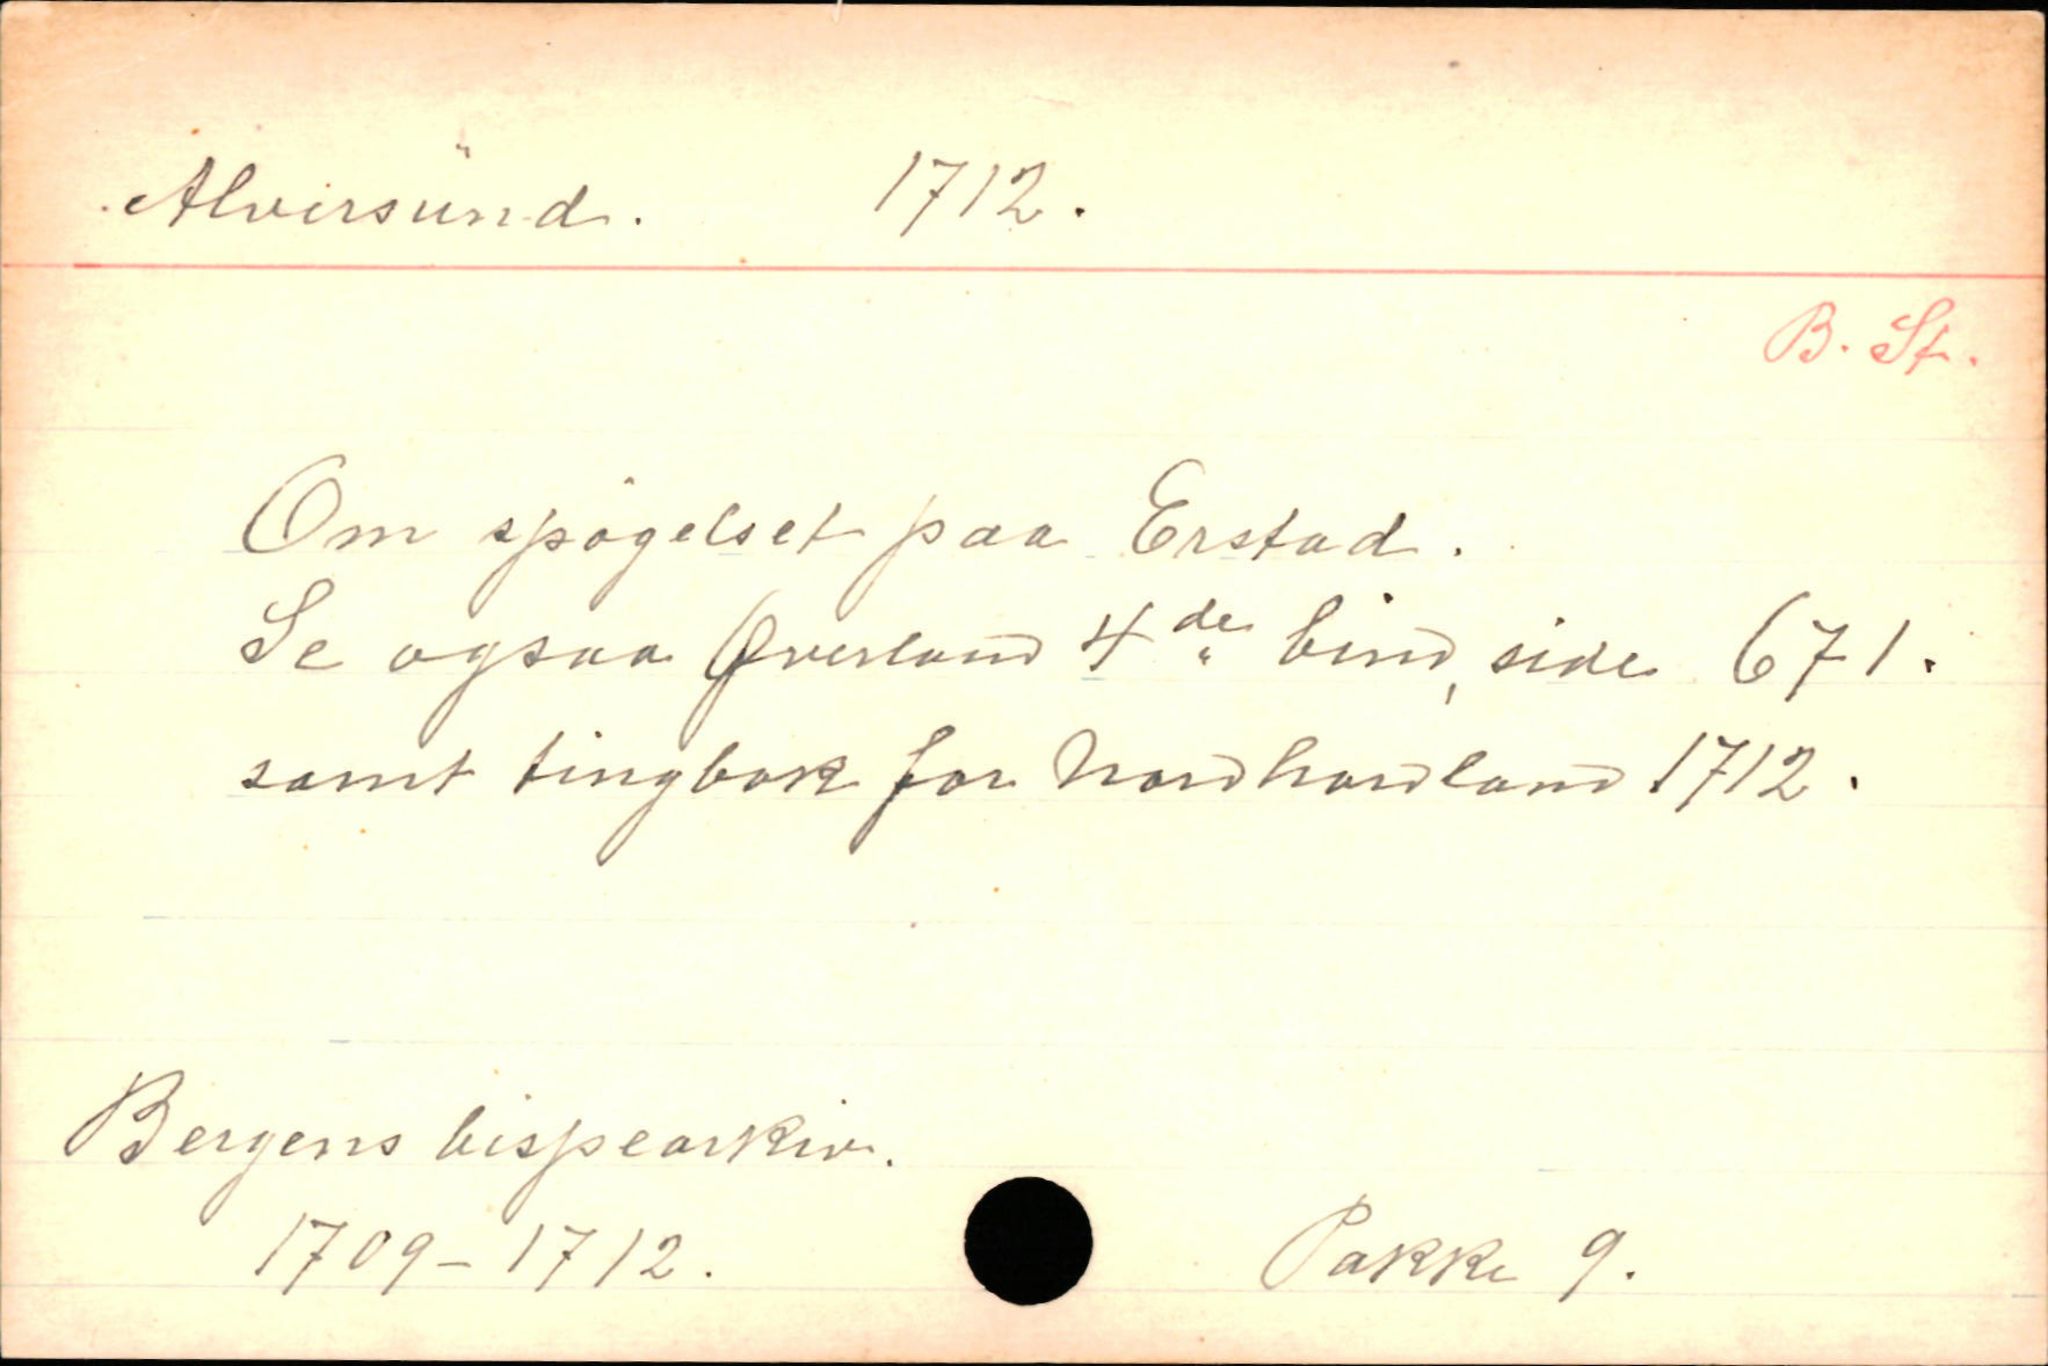 Alversund. 1712.
B. St.
Om spøgelset paa Erstad.
Se ogsaa Øverland 4de bind, side 671.
samt tingbok for Nordhordland 1712.
Bergens bispearkiv.
1709-1712. Pakke 9.